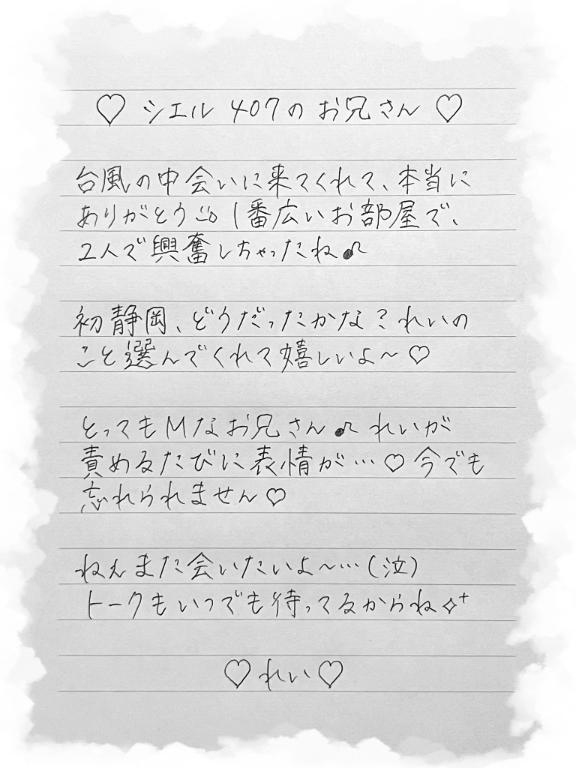 ♡ シエル 407の お兄さん ♡
台風の中会いに来てくれて、本当に
ありがとう 1番広いお部屋で、
2人で興奮しちゃったね♪
初静岡、どうだったかな？れいの
こと選んでくれて嬉しいよ〜♡
とってもMなお兄さん♪れいが
責めるたびに表情が…♡今でも
忘れられません♡
ねぇまた会いたいよ〜…(泣)
トークもいつでも待ってるからね✧⁺
♡れい♡